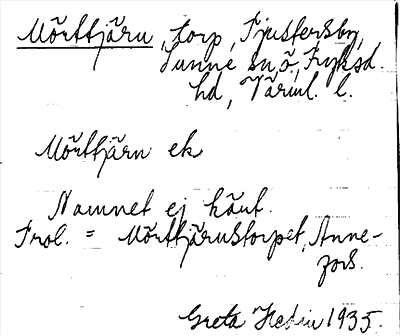 Mörttjärn, torp, Fjustersby,
Sunne sn ö, Fryksd.
hd, Värml. l.
Mörttjärn ek
Namnet ej känt.
Trol. = Mörttjärnstorpet, Anne-
fors.
Greta Hedin 1935.